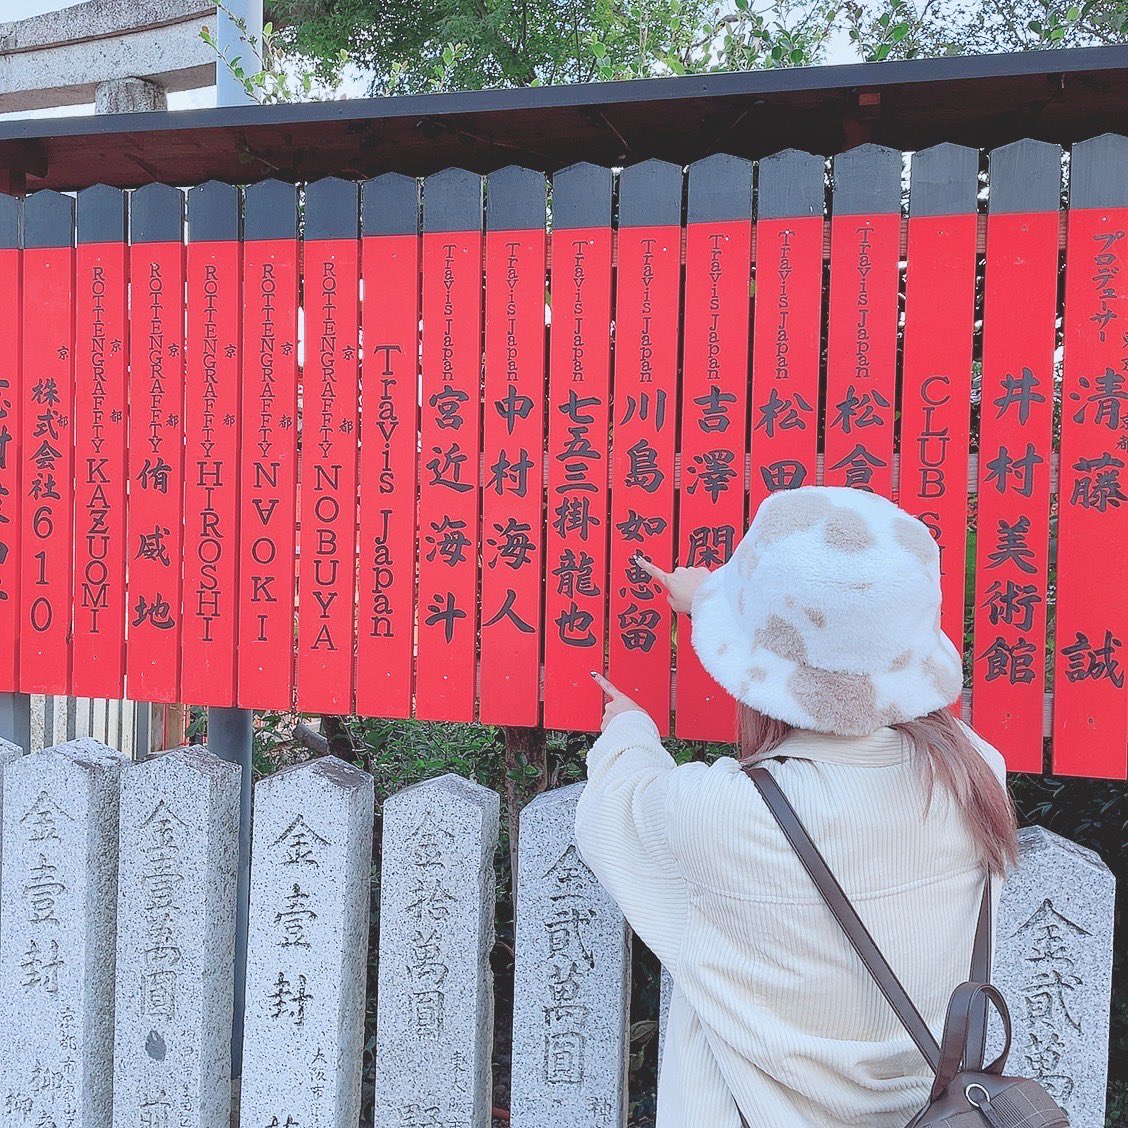 プロデューサー 清藤 誠
井村美術館
CLUB
Travis Japan 松倉
Travis Japan 松田
Travis Japan 吉澤閑
Travis Japan 川島如恵留
Travis Japan 七五三掛龍也
Travis Japan 中村海人
Travis Japan 宮近海斗
Travis Japan
京都 ROTTENGRAFFTY NOBUYA
京都 ROTTENGRAFFTY N∀OKI
京都 ROTTENGRAFFTY HIROSHI
京都 ROTTENGRAFFTY 侑威地
京都 ROTTENGRAFFTY KAZUOMI
京都 株式会社610
金貳萬
金貳萬圓
金拾萬圓
金壹封
大阪市
金壹萬圓
金壹封
京都市